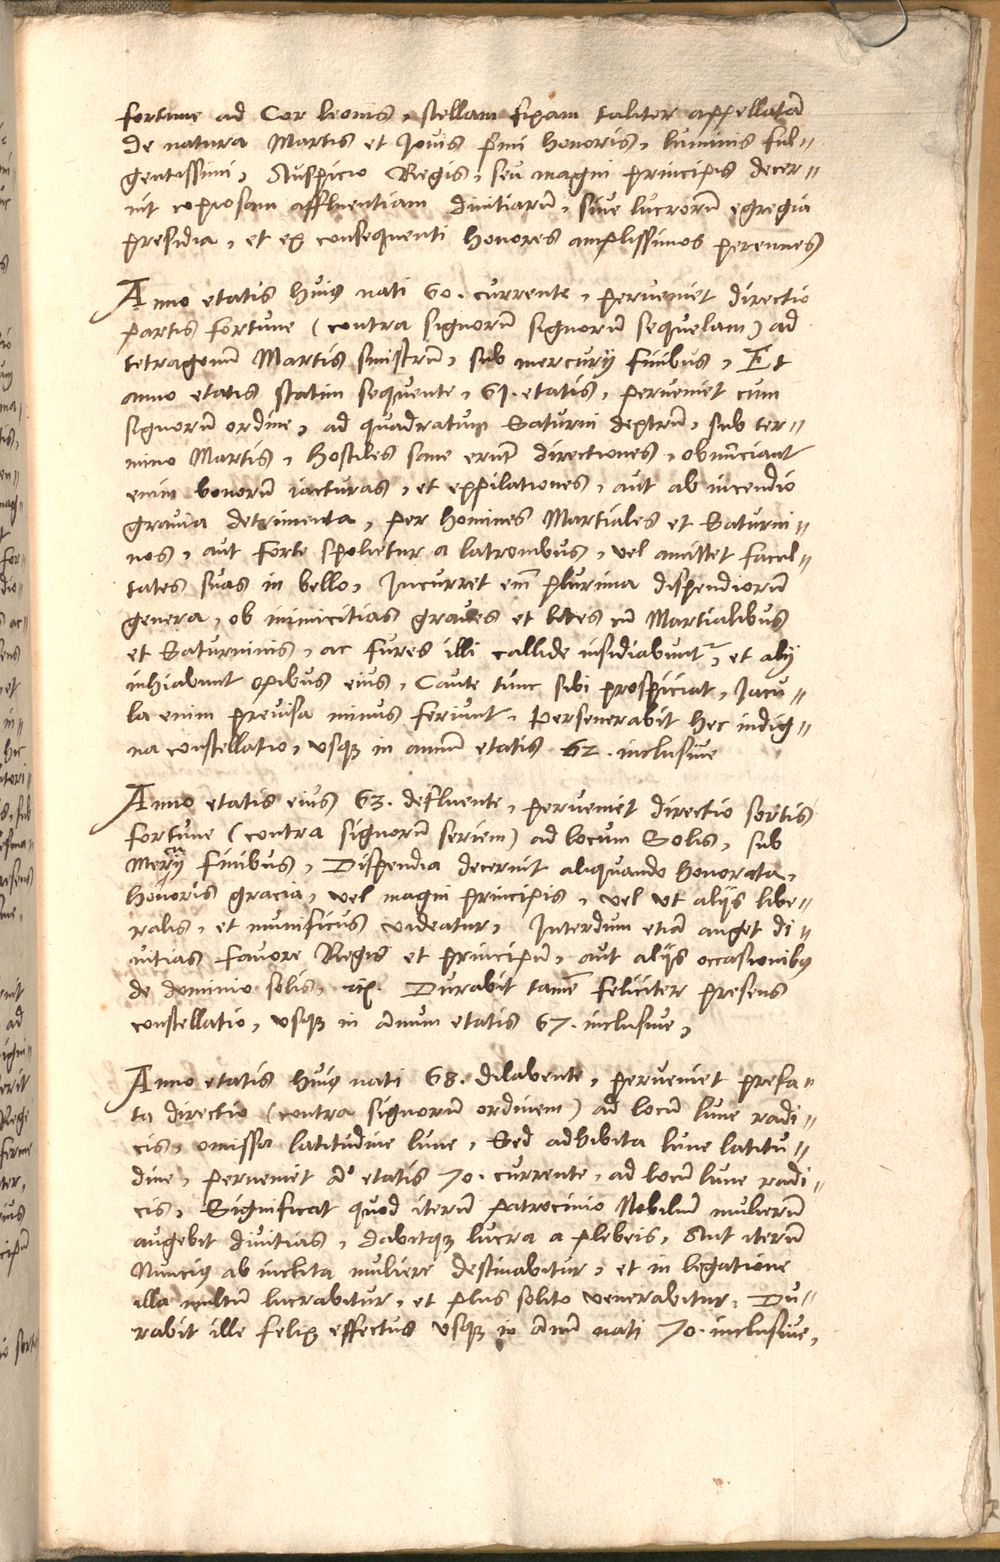 fortune ad Cor leonis, stellam fixam taliter appellatā
de natura Martis et Jovis p̄mi honoris, luminis ful〃
gentissimi, Auspicio Regis, seu magni principis decer〃
nit copiosam affluentiam divitiarū, sive lucrorū egregia
presidia, et ex consequenti honores amplissimos perennes

Anno etatis huiꝰ nati 60. currente, perveniet directio
partis fortune (contra signorū signorū sequelam) ad
tetragonū Martis sinistrū, sub mercurij finibus, Et
anno etatis statim sequente, 61. etatis, perveniet cum
signorū ordine, ad quadratum Saturni dextrū, sub ter〃
mino Martis, hostiles sane erunt directiones, obnunciant
enim bonorū iacturas, et expilationes, aut ab incendio
gravia detrimenta, per homines Martiales et Saturni〃
nos, aut forte spolietur a latronibus, vel amittet facul〃
tates suas in bello, Incurret em̄ plurima dispendiorū
genera, ob inimicitias graves et lites cū Martialibus
et Saturninis, ac fures illi callide insidiabuntʳ, et alij
inhiabunt opibus eius, Caute tunc sibi prospiciat, Jacu〃
la enim previsa minus feriunt. Perseverabit hec indig〃
na constellatio, usqꝫ in annū etatis 62. inclusive

Anno etatis eius 63. defluente, perveniet directio sortis
fortune (contra signorū seriem) ad locum Solis, sub
Mercurij finibus, Dispendia decernit aliquando honorata,
honoris gracia, vel magni principis, vel ut aliis libe〃
ralis, et munificus videatur, Interdum etiā auget di〃
vitias favore Regis et principū, aut alijs occasionibꝰ
de dominio solis, Durabit tamē feliciter presens
constellatio, usqꝫ in annum etatis 67. inclusive,

Anno etatis huiꝰ nati 68. dilabente, perveniet prefa〃
ta directio (contra signorū ordinem) ad locū lune radi〃
cis, omissa latitudine lune, Sed adhibita lune latitu〃
dine, perveniet āo etatis 70. currente, ad locū lune radi〃
cis, Significat quod iterū patrocinio Nobiliū mulierū
augebit divitias, dabitqꝫ lucra a plebeis, Aut iterū
Nunciꝰ ab inclita muliere destinabitur, et in legatione
illa multū lucrabitur, et plus solito venerabitur. Du〃
rabit ille felix effectus usqꝫ in annū nati 70. inclusive,